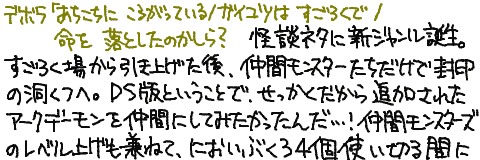 デボラ「あちこちに ころがっている/ガイコツは すごろくで/
命を 落としたのかしら? 怪談ネタに新ジャンル誕生。
すごろく場から引き上げた後、仲間モンスターたちだけで封印
の洞くつへ。DS版ということで、せっかくだから追加された
アークデーモンを仲間にしてみたかったんだ…!仲間モンスターズ
のレベル上げも兼ねて、においぶくろ4個使い切る間に